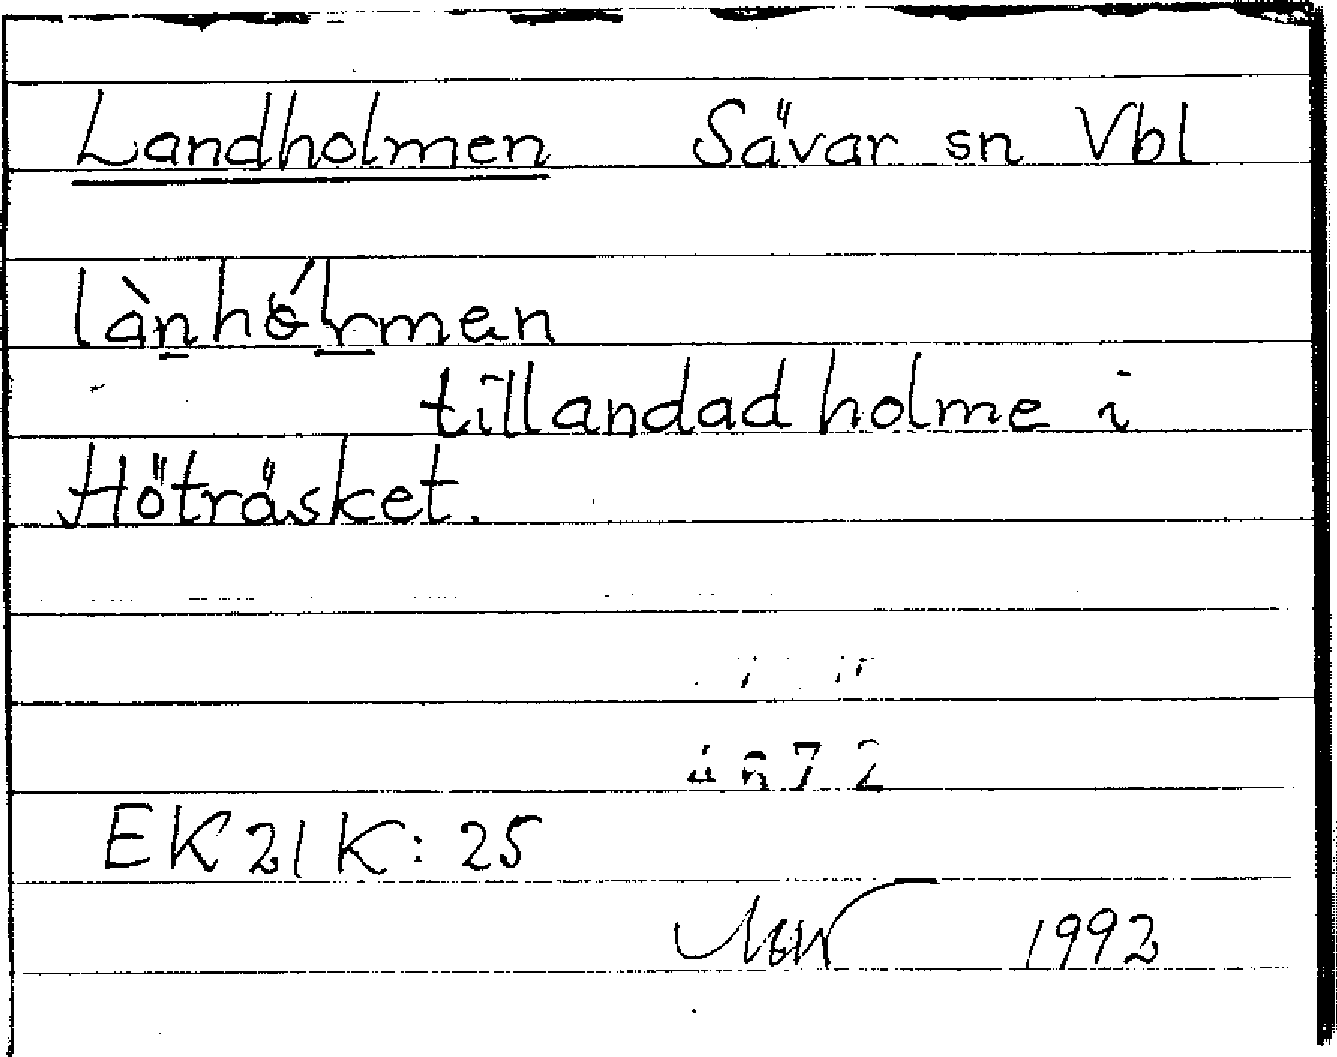 Landholmen Sävar sn Vbl
lànhólmen
tillandad holme i
Höträsket.
EK21K: 25
1992